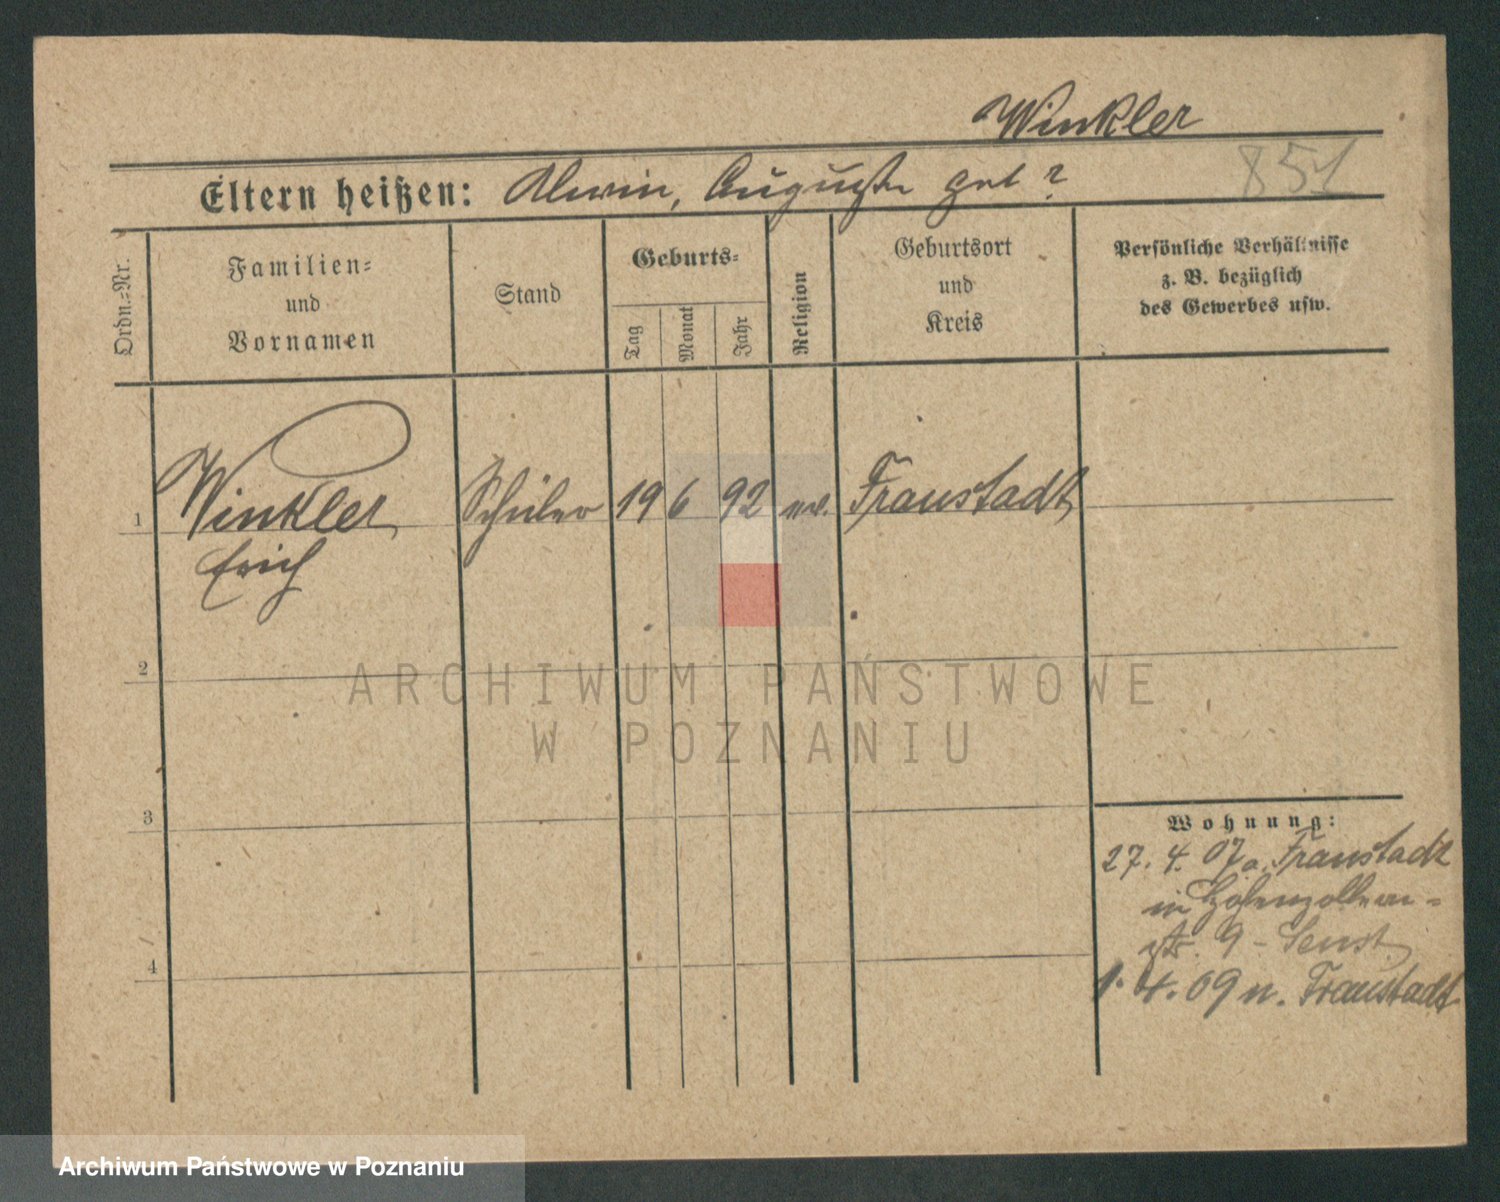 Winkler
851
Eltern heißen: Alwin, Auguste geb ?
Ordn.-Nr.
Familien-
und
Vornamen
Stand
Geburts-
Tag
Monat
Jahr
Religion
Geburtsort
und
Kreis
Persönliche Verhältnisse
z. B. bezüglich
des Gewerbes usw.
1 Winkler Schüler 19 6 92 ev. Fraustadt
Erich
2
ARCHIWUM PAŃSTWOWE
W POZNANIU
3
Wohnung:
27. 4. 07 a. Fraustadt
in Hohenzollern-
str. 9 -
4
1. 4. 09 n. Fraustadt
Archiwum Państwowe w Poznaniu